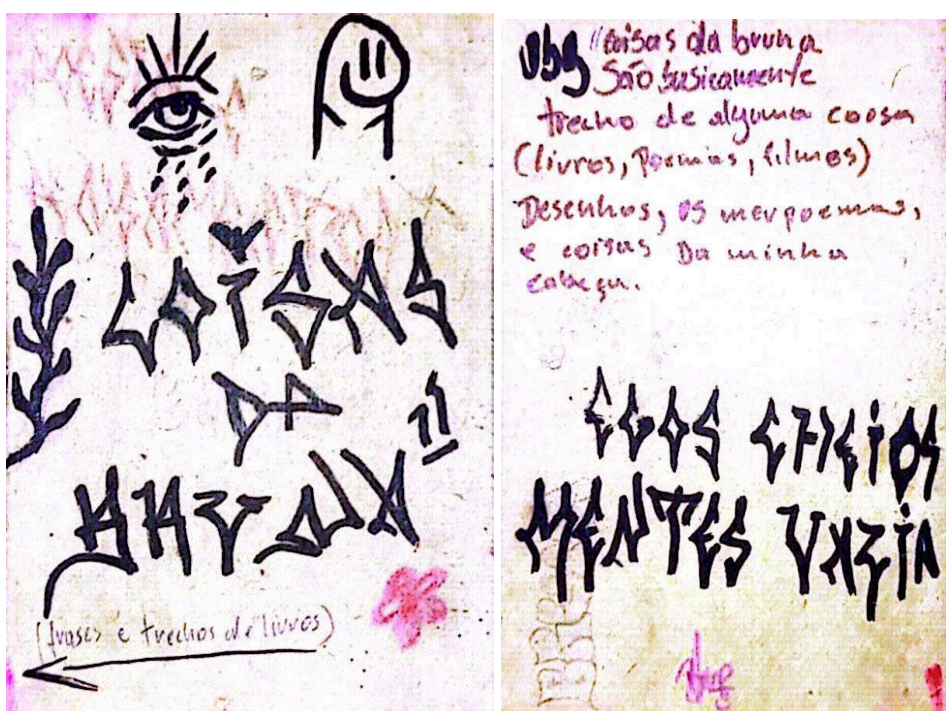 COISAS
DA
BRUNA
(frases e trechos de livros)
Obs "coisas da bruna
São basicamente
trecho de alguma coosa
(livros, Poemias, filmes)
Desenhos, os meu poemas,
e coisas Da minha
cabeça.
EGOS CHEIOS
MENTES VAZIA